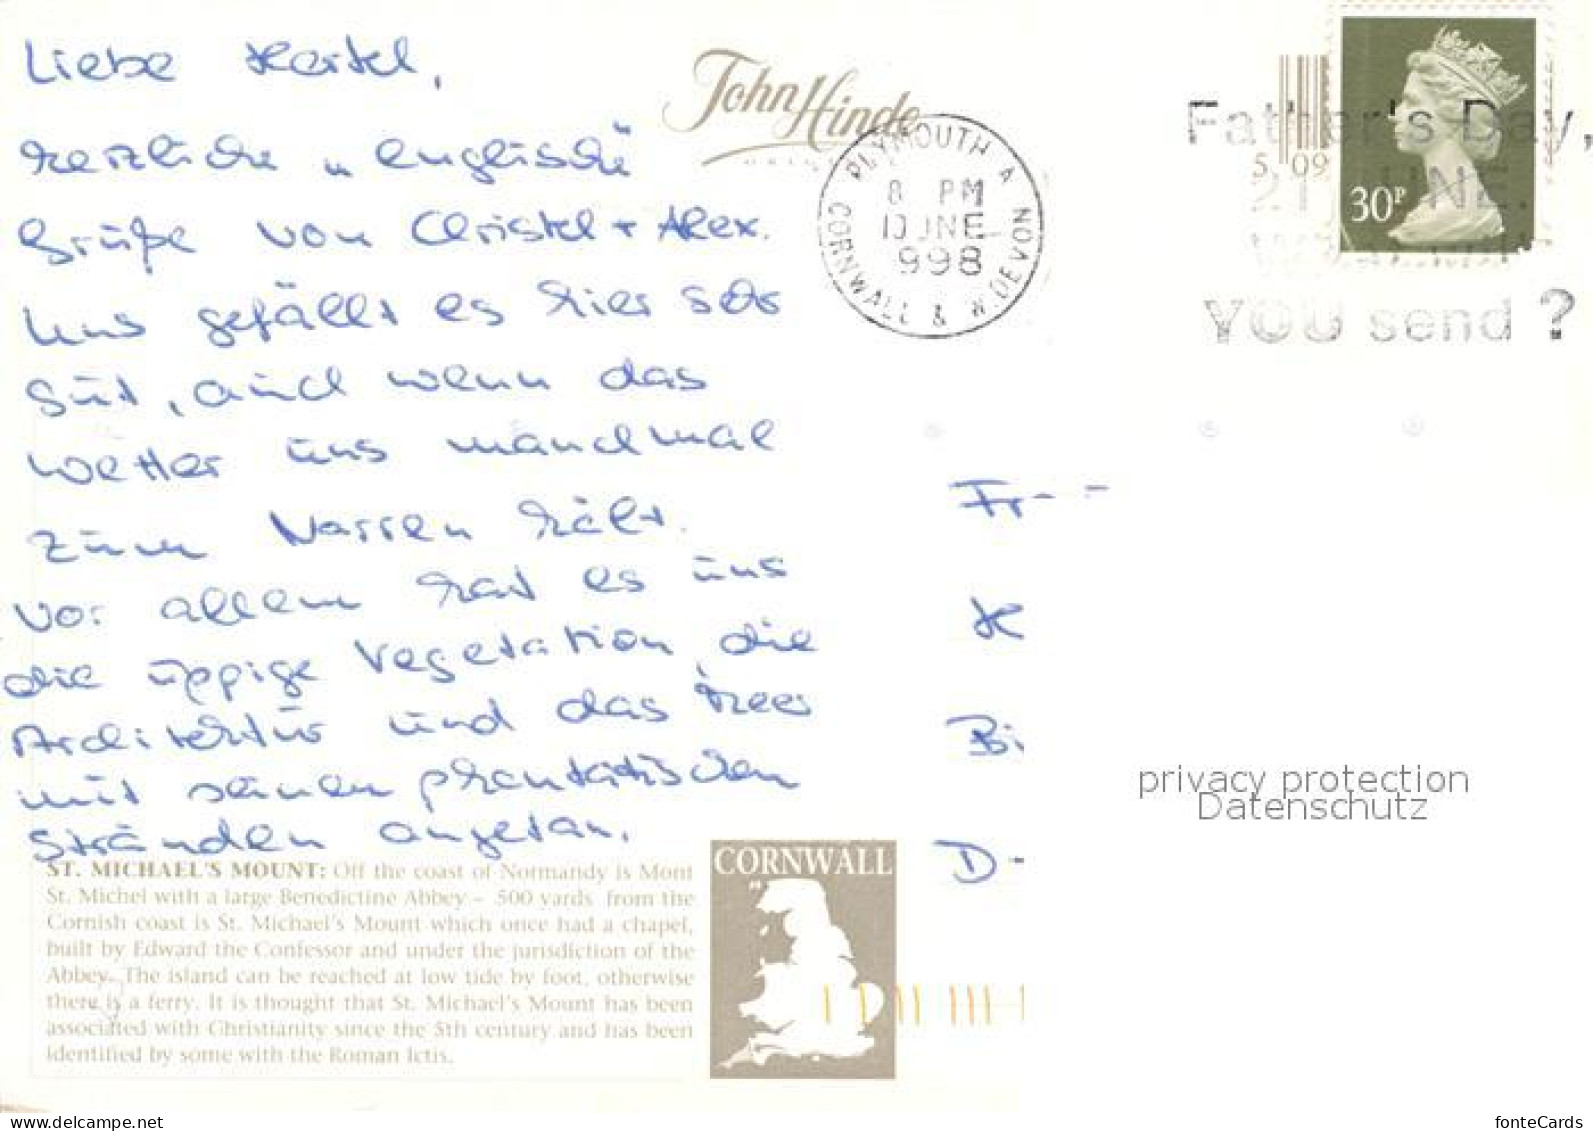 Liebe Hertel,
herzliche u englische
Grüße von Christel + Alex.
Uns gefällt es hier sehr
gut, auch wenn das
Wetter uns manchmal
zum Narren hält.
Vor allem hat es uns
die üppige Vegetation, die
Architektur und das Meer
mit seinen phantatischen
Stränden angetan.
John Hinde
PLYMOUTH A
CORNWALL & W. DEVON
8 PM
10 JNE
998
Father's Day,
21 JUNE.
YOU send ?
5 09
30P
Fr
H
Bi
D-
privacy protection
Datenschutz
ST. MICHAEL'S MOUNT: Off the coast of Normandy is Mont
St. Michel with a large Benedictine Abbey – 500 yards from the
Cornish coast is St. Michael's Mount which once had a chapel,
built by Edward the Confessor and under the jurisdiction of the
Abbey. The island can be reached at low tide by foot, otherwise
there is a ferry. It is thought that St. Michael's Mount has been
associated with Christianity since the 5th century and has been
identified by some with the Roman Ictis.
CORNWALL
www.delcampe.net
fonteCards